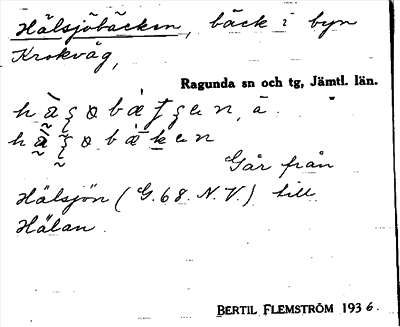 Hälsjöbäcken, bäck i byn
Krokvåg,
Ragunda sn och tg, Jämtl. län.
Går från
Hälsjön (G.68. N.V.) till
Hälan.
BERTIL FLEMSTRÖM 1936.